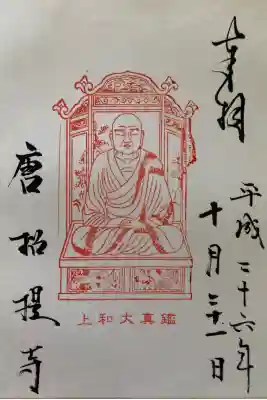 奉拝
平成二十六年
十月三十一日
上和大真鑑
唐招提寺